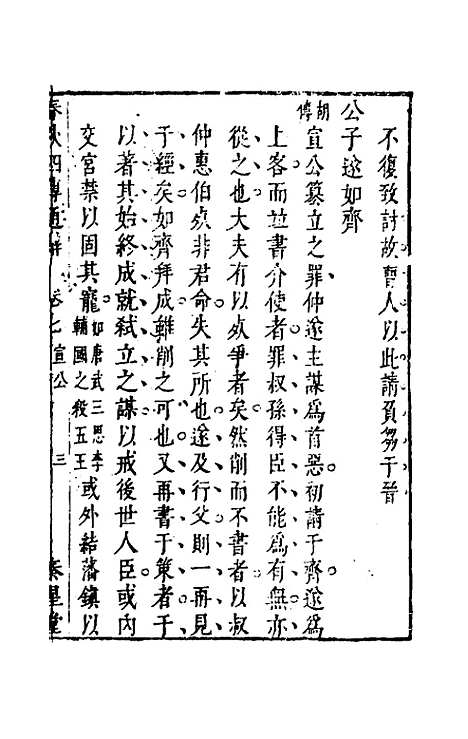 不復致討故曹人以此請負芻于晉
公子遂如齊
胡傳
宣公篡立之罪仲遂主謀為首惡初請于齊遂為
上客而並書介使者罪叔孫得臣不能為有無亦
從之也大夫有以死爭者矣然削而不書者以叔
仲惠伯死非君命失其所也遂及行父則一再見
于經矣如齊拜成雖削之可也又再書于策者于
以著其始終成就弒立之謀以戒後世人臣或內
交宮禁以固其寵如唐武三思李輔國之殺五王或外結藩鎮以
春秋四傳通辭 卷七 宣公 三